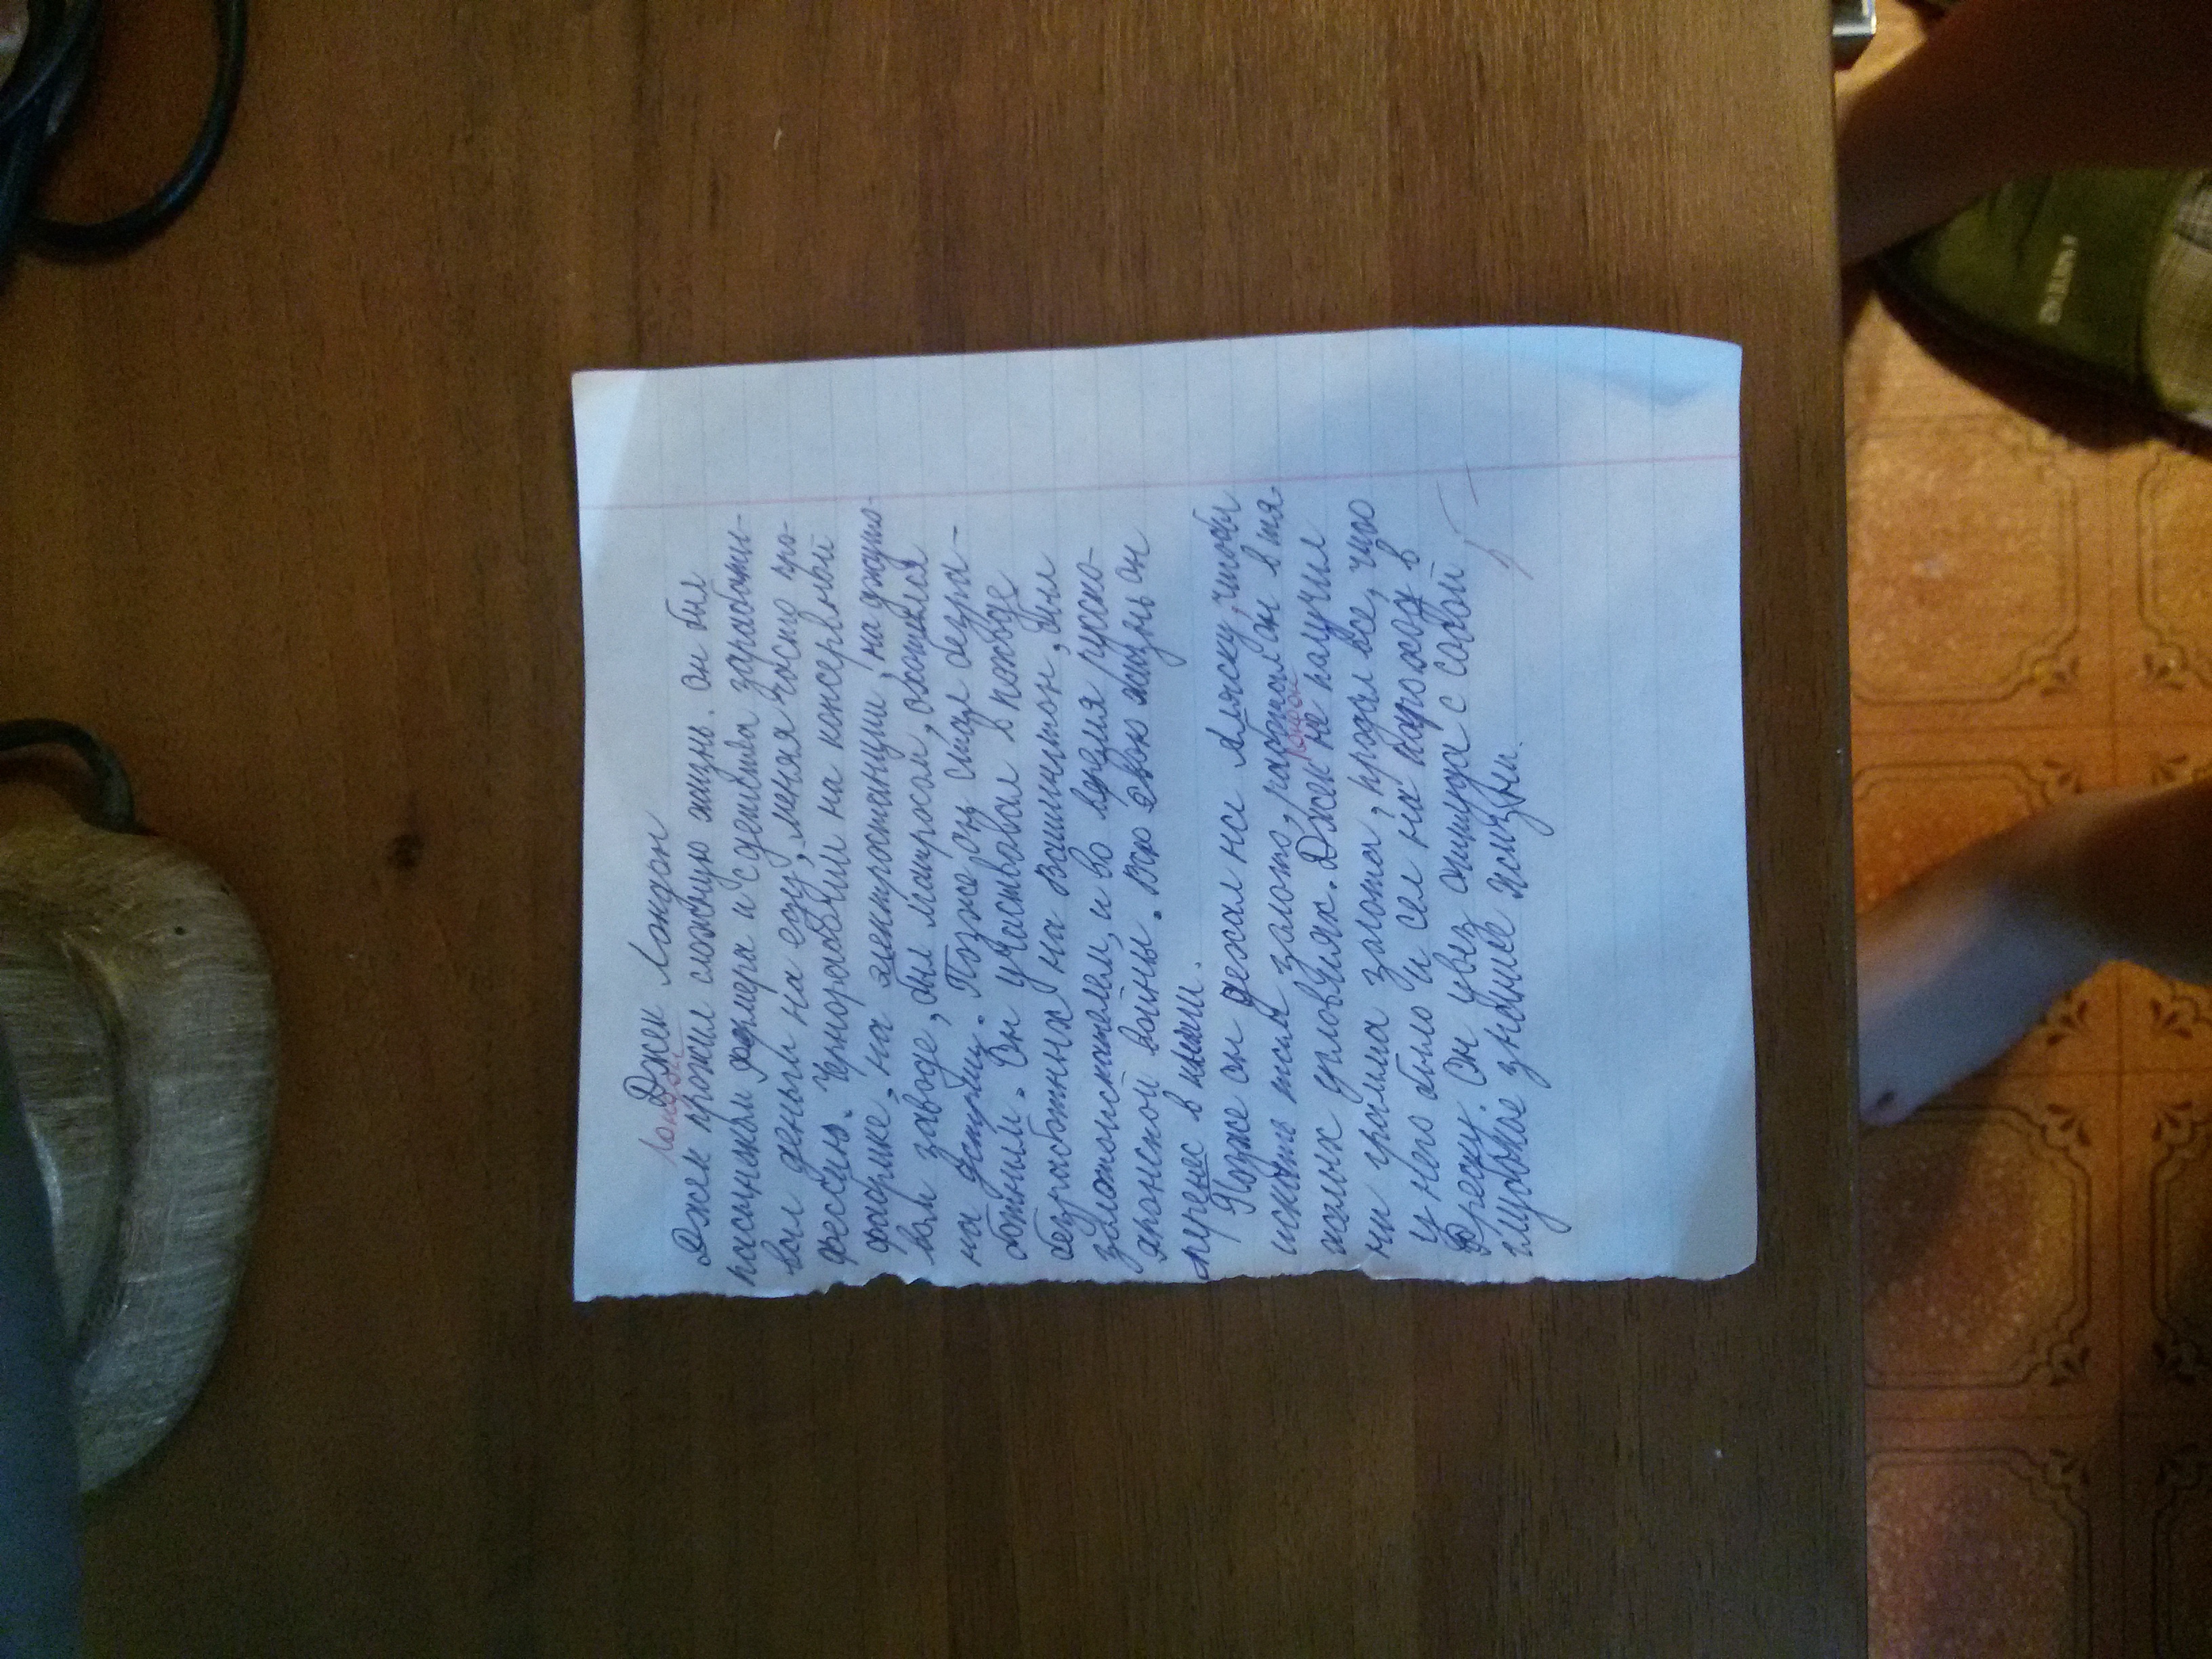 Джек Лондон
Лондон
Джек прожил сложную жизнь. Он был
пасынком фермера и с детства зарабаты-
вал деньги на еду, меняя часто про-
фессию. Чернорабочий на консервной
фабрике, на электростанции, на джуто-
вом заводе, был матросом, охотился
на
Позже он стал безра-
ботным. Он участвовал в походе
безработных на Вашингтон, был
золотоискателем, и во время руско-
японской войны. Всю свою жизнь он
перенес в книги.
Позже он уехал на Аляску, чтобы
искать там золото, работал он в тя-
желых условиях. Джек не получил
Лондон
ни грамма золота, продал все, что
у него было и сел на пароход в
Фриско. Он увез оттуда с собой
глубокое знание жизни.